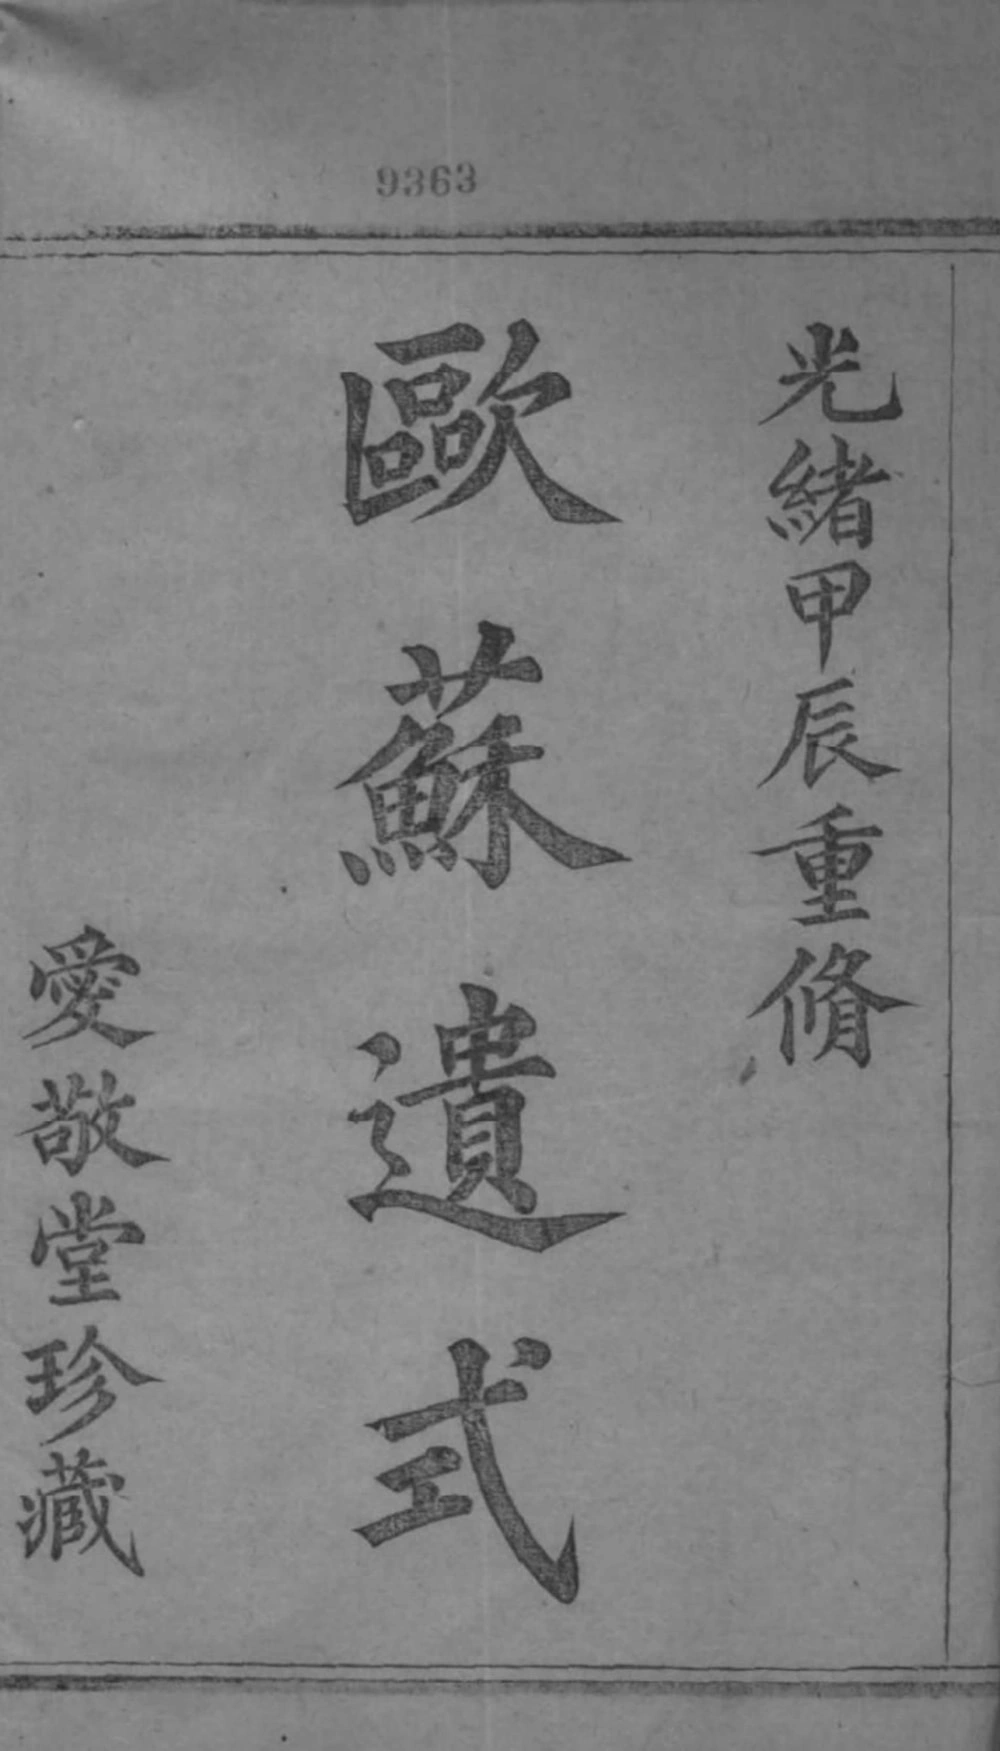 9363
光緒甲辰重脩
歐蘇遺式
愛敬堂珍藏